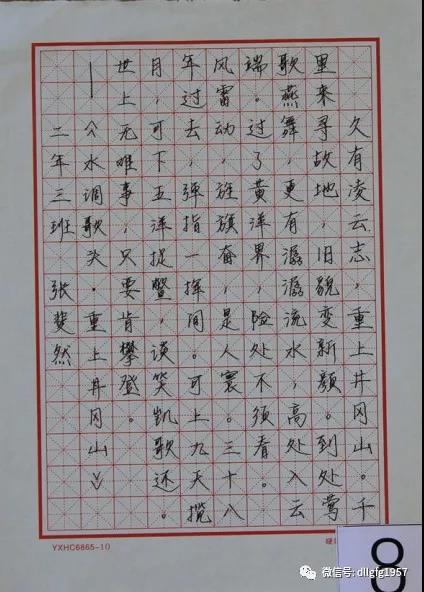 久有凌云志，重上井冈山。千
里来寻故地，旧貌变新颜。到处莺
歌燕舞，更有潺潺流水，高处入云
端。过了黄洋界，险处不须看。
风雷动，旌旗奋，是人寰。三十八
年过去，弹指一挥间。可上九天揽
月，可下五洋捉鳖，谈笑凯歌还。
世上无难事，只要肯攀登。
——《水调歌头·重上井冈山》
二年三班 张斐然
YXHC6865-10
微信号: dllgfg1957